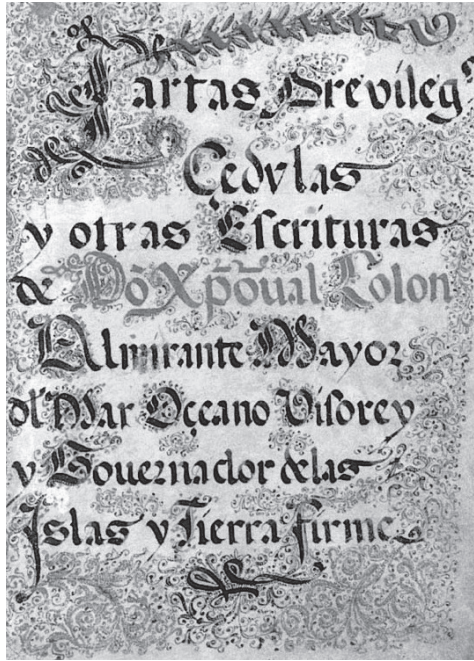 Cartas Previleg⁹
Cedvlas
y otras Escrituras
de Dõ Xp̃oual Colon
Almirante Mayor
dl Mar Oçeano Visorey
y Gouernador delas
Islas y Tierra firme